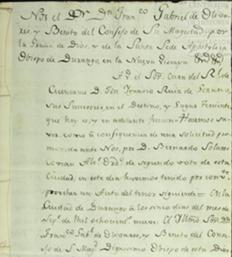 Nos el Dr. Dn. Fran.co Gabriel de Oliva-
res y Benito del Consejo de Su Magestad, por
la Gracia de Dios, y de la Santa Sede Apostolica
Obispo de Durango, en la Nueva
A V. el Sr. Cura del Rl. de
Cuencamé D. Jph. Ignacio
sus Succesores en el Destino, y Lugar Theniente
que hoy es, y en adelante fueren: Hacemos sa-
ver: como à consequencia de una solicitud pro-
movida ante Nos, por D. Bernardo Solares
de segundo voto de esta
Ciudad, en este dia havemos tenido por con-
probeher un Auto del tenor siguiente = En la
Ciudad de Durango à los cinco dias del mes de
de mil ochocientos nueve. El Illmo. Sor. Dr.
Fran.co Gab.l de Olivares, y Benito del Con-
sejo de S. Mag.d Dignisimo Obispo de esta